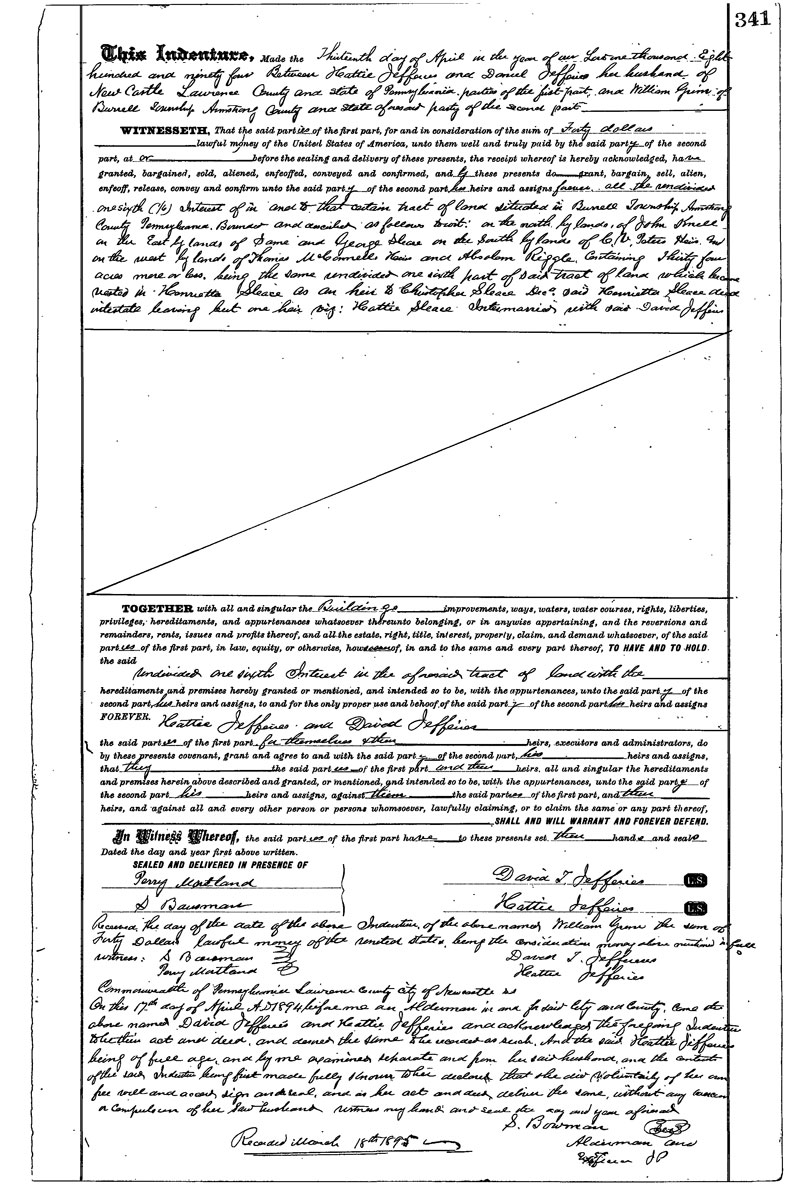 341
This Indenture, Made the Thirteenth day of April in the year of our Lord one thousand Eight
hundred and ninety four Between Hattie Jefferies and Daniel Jefferies her husband of
New Castle Lawrence County and state of Pennsylvania parties of the first part, and William Grim of
Burrell Township Armstrong County and state aforesaid party of the second part.
WITNESSETH, That the said parties of the first part, for and in consideration of the sum of Forty dollars
lawful money of the United States of America, unto them well and truly paid by the said party of the second
part, at or before the sealing and delivery of these presents, the receipt whereof is hereby acknowledged, have
granted, bargained, sold, aliened, enfeoffed, conveyed and confirmed, and by these presents do grant, bargain, sell, alien,
enfeoff, release, convey and confirm unto the said party of the second part, his heirs and assigns forever. all the undivided
one sixth (1/6) Interest of in and to that certain tract of land situated in Burrell Township Armstrong
County Pennsylvania. Bounded and described as follows towit: on the north by lands, of John
on the East by lands of Same and George Sleace on the South by lands of C. V. Peters Heirs. and
on the west by lands of Thomas McConnells Heirs and Absolom Riggle. Containing Thirty four
acres more or less. being the same undivided one sixth part of said tract of land which became
vested in Henrietta Sleace as an heir to Christopher Sleace Decd. said Henrietta Sleace died
intestate leaving but one heir viz: Hattie Sleace Intermarried with said David Jefferies
TOGETHER with all and singular the Buildings improvements, ways, waters, water courses, rights, liberties,
privileges, hereditaments, and appurtenances whatsoever thereunto belonging, or in anywise appertaining, and the reversions and
remainders, rents, issues and profits thereof, and all the estate, right, title, interest, property, claim, and demand whatsoever, of the said
parties of the first part, in law, equity, or otherwise, howsoever of, in and to the same and every part thereof, TO HAVE AND TO HOLD
the said
undivided one sixth Interest in the aforesaid tract of land with the
hereditaments and premises hereby granted or mentioned, and intended so to be, with the appurtenances, unto the said party of the
second part, his heirs and assigns, to and for the only proper use and behoof of the said party of the second part his heirs and assigns
FOREVER. Hattie Jefferies and David Jefferies
the said parties of the first part for themselves & their heirs, executors and administrators, do
by these presents covenant, grant and agree to and with the said party of the second part, his heirs and assigns,
that they the said parties of the first part and their heirs, all and singular the hereditaments
and premises herein above described and granted, or mentioned, and intended so to be, with the appurtenances, unto the said party of
the second part his heirs and assigns, against them the said parties of the first part, and their
heirs, and against all and every other person or persons whomsoever, lawfully claiming, or to claim the same or any part thereof,
SHALL AND WILL WARRANT AND FOREVER DEFEND.
In Witness Whereof, the said parties of the first part have to these presents set their hands and seals
Dated the day and year first above written.
SEALED AND DELIVERED IN PRESENCE OF
Perry Maitland David T. Jefferies L.S.
S Bausman Hattie Jefferies L.S.
Received, the day of the date of the above Indenture, of the above named William Grim the sum of
Forty Dollars lawful money of the united states, being the consideration money above mentioned in full
witness: S Bausman David T. Jefferies
Perry Maitland Hattie Jefferies
Commonwealth of Pennsylvania Lawrence County City of Newcastle ss
On this 17th day of April A.D 1894, before me an Alderman in and for said City and County, Came the
above named David Jefferies and Hattie Jefferies and acknowledged the foregoing Indenture
to be their act and deed, and desired the same to be recorded as such. And the said Hattie Jefferies
being of full age, and by me examined separate and from her said husband, and the contents
of the said Indenture being first made fully known to her declared that she did Voluntarily of her own
free will and accord sign and seal, and as her act and deed, deliver the same, without any coercion
or compulsion of her said husband witness my hand and seal the day and year aforesaid
S. Bowman Seal
Recorded March 18th 1895 Alderman and
Ex officio JP